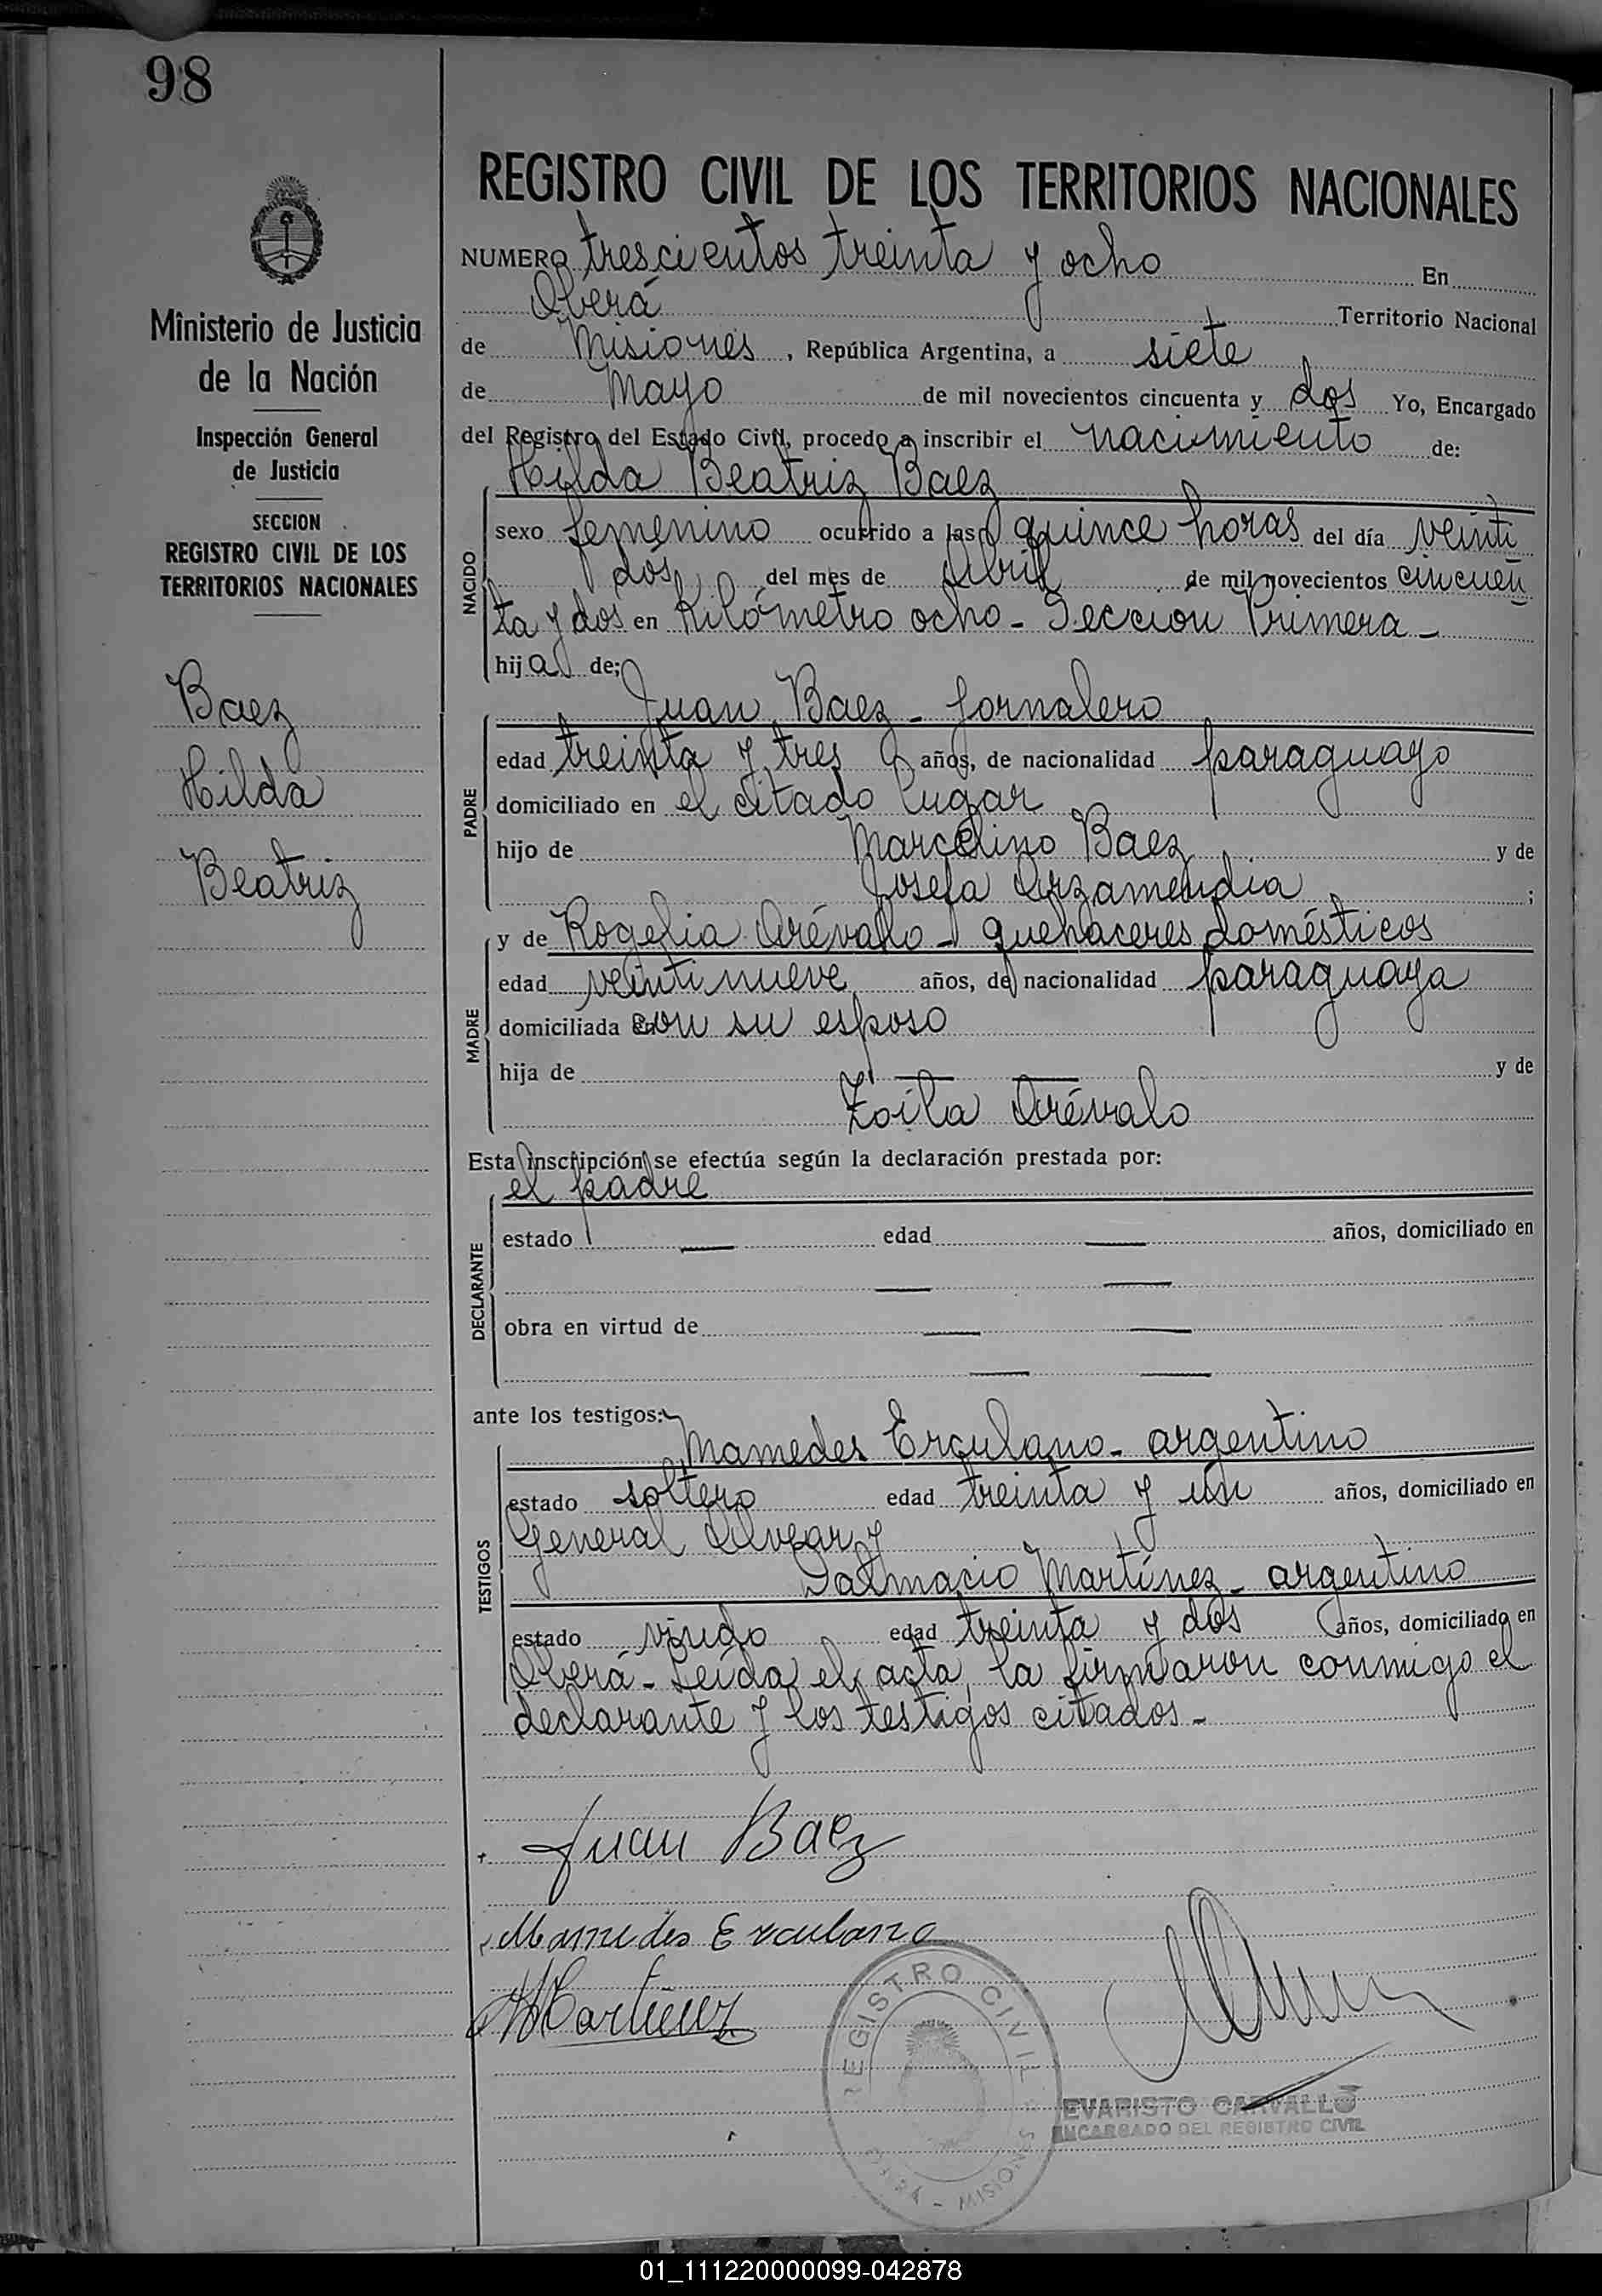 98
Ministerio de Justicia
de la Nación
Inspección General
de Justicia
SECCION
REGISTRO CIVIL DE LOS
TERRITORIOS NACIONALES
Baez
Hilda
Beatriz
REGISTRO CIVIL DE LOS TERRITORIOS NACIONALES
NUMERO trescientos treinta y ocho En
Oberá Territorio Nacional
de Misiones, República Argentina, a siete
de Mayo de mil novecientos cincuenta y dos Yo, Encargado
del Registro del Estado Civil, procedo a inscribir el nacimiento de:
Hilda Beatriz Baez
NACIDO
sexo femenino ocurrido a las quince horas del día veinti
dós del mes de Abril de mil novecientos cincuen
ta y dos en Kilómetro ocho - Seccion Primera -
hija de;
Juan Baez - Jornalero
PADRE
edad treinta y tres años, de nacionalidad paraguayo
domiciliado en el citado lugar
hijo de Marcelino Baez y de
Josefa Arzamendia ;
y de Rogelia Arévalo - quehaceres domésticos
MADRE
edad veintinueve años, de nacionalidad paraguaya
domiciliada con su esposo
hija de — — y de
Zoila Arévalo
Esta inscripción se efectúa según la declaración prestada por:
el padre
DECLARANTE
estado — edad — años, domiciliado en
— —
obra en virtud de — —
— —
ante los testigos:
Mamedes Erculano - argentino
TESTIGOS
estado soltero edad treinta y un años, domiciliado en
General Alvear y
Dalmacio Martínez - argentino
estado viudo edad treinta y dos años, domiciliado en
Oberá - Leída el acta, la firmaron conmigo el
declarante y los testigos citados -
Juan Baez
Mamedes Erculano
Martinez
REGISTRO CIVIL
OBERÁ - MISIONES
EVARISTO CARVALLO
ENCARGADO DEL REGISTRO CIVIL
01_111220000099-042878